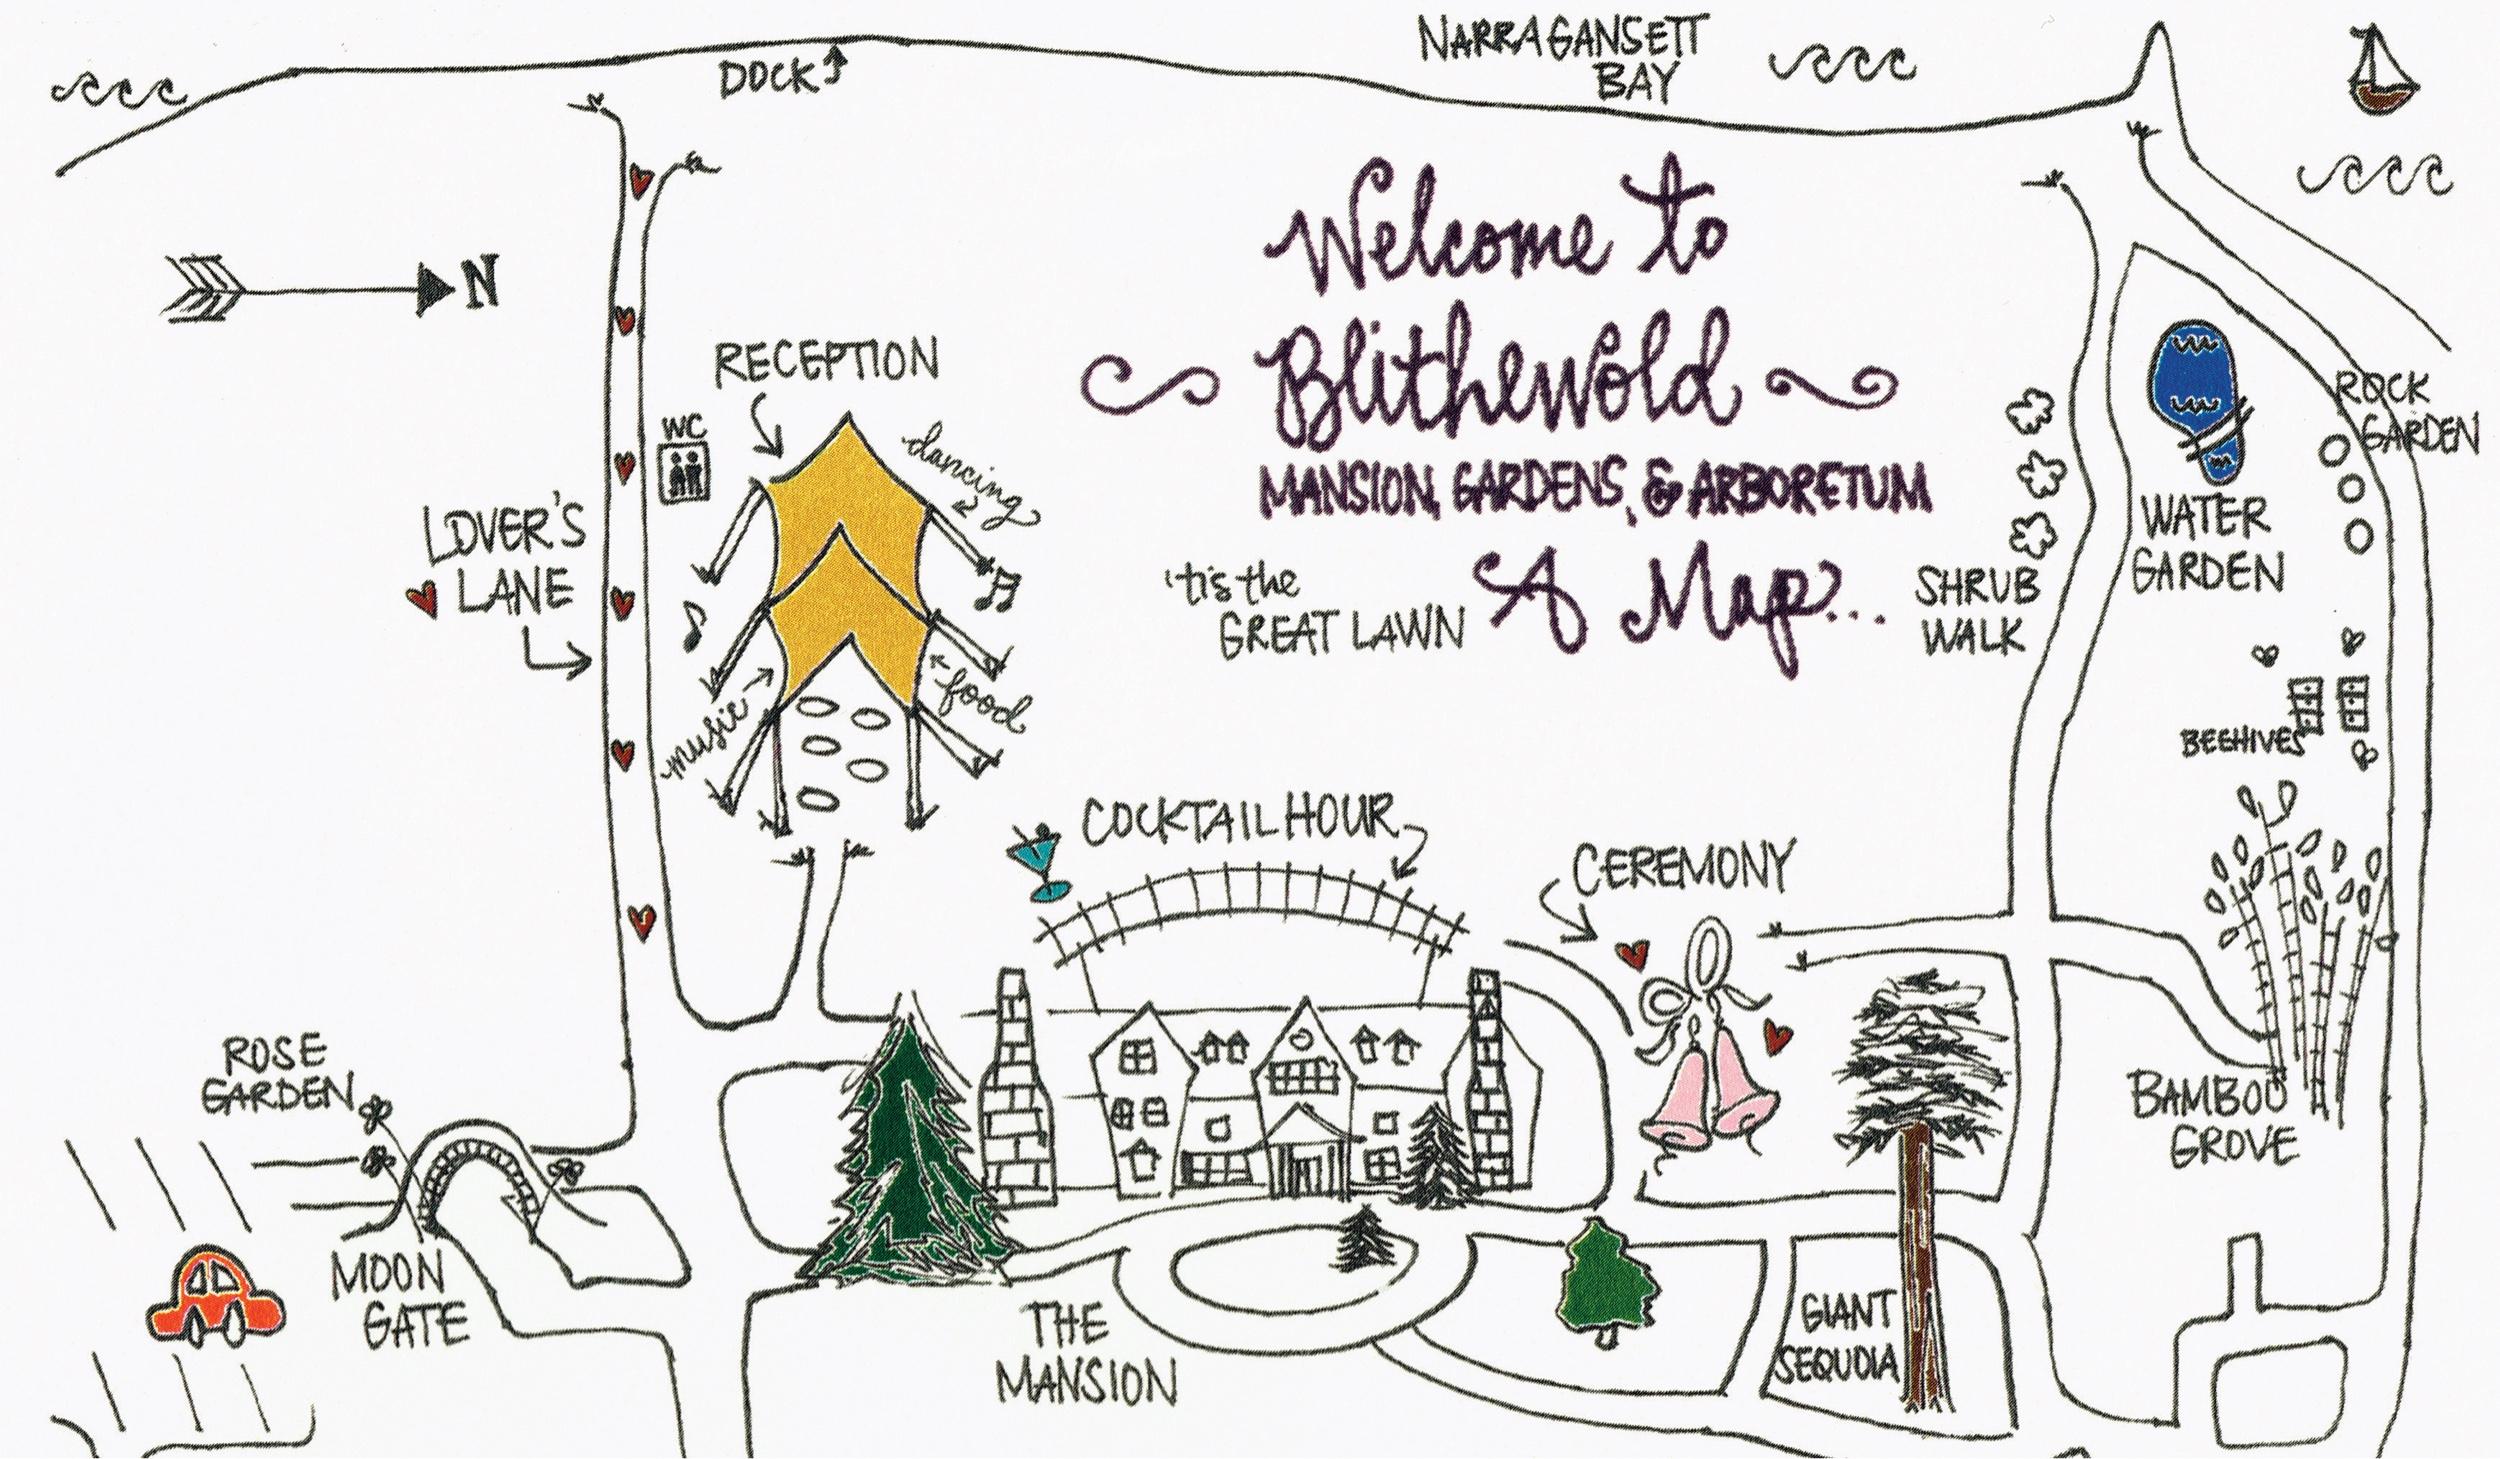 NARRAGANSETT
BAY
DOCK
Welcome to
Blithewold
MANSION, GARDENS, & ARBORETUM
A Map...
'tis the
GREAT LAWN
N
RECEPTION
WC
dancing
music
food
LOVER'S
LANE
SHRUB
WALK
WATER
GARDEN
ROCK
GARDEN
BEEHIVES
COCKTAIL HOUR
CEREMONY
BAMBOO
GROVE
ROSE
GARDEN
MOON
GATE
THE
MANSION
GIANT
SEQUOIA